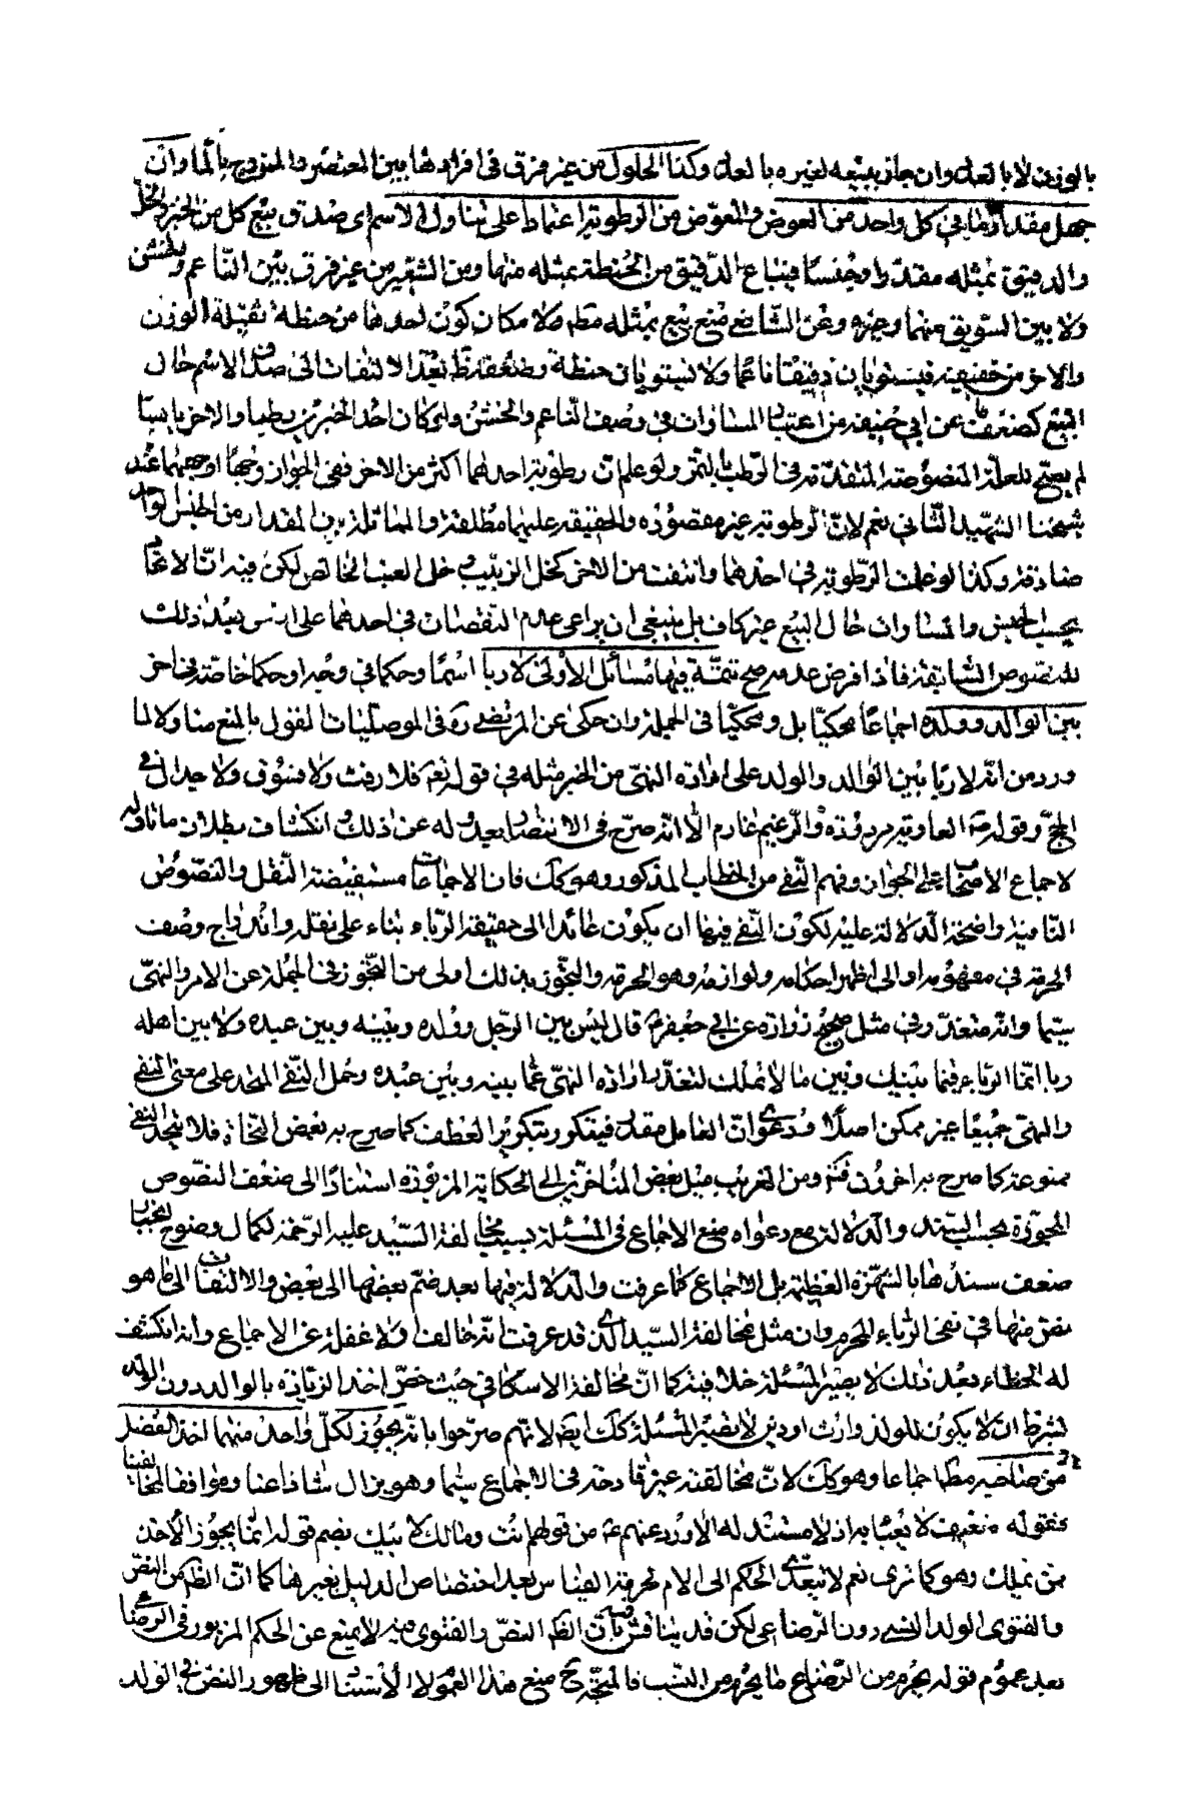 بالوزن لا بالعدل وان جاز بيعه لغيره بالعدل وكذا الحلول من غير فرق في افرادها بين المعتصر والممزوج بالماء وان
جهل مقدارها في كل واحد من العوض والمعوض من الرطوبة اعتمادا على تناول الاسم اي صدق بيع كل من الخبز والخل
والدقيق بمثله مقدرا وجنسا فيباع الدقيق من الحنطة بمثله منها ومن الشعير من غير فرق بين الناعم والخشن
ولا بين السويق منهما وغيره وعن الشافعي منع بيع بمثله مط لامكان كون احدهما من حنطة ثقيلة الوزن
والاخر من خفيفة فيستويان دقيقا ناعما ولا يستويان حنطة وضعفه ظ بعد الالتفات الى صدق الاسم حال
البيع كضعف عن ابي حنيفة من اعتبار المساوات في وصف الناعم والخشن ولو كان احد الخبزين رطبا والاخر يابسا
لم يصح للعلة المنصوصة المتقدمة في الرطب بالتمر ولو علم ان رطوبة احدهما اكثر من الاخر ففي الجواز وجها اوجههما عند
شيخنا الشهيد الثاني نعم لان الرطوبة غير مقصوده والحقيقة عليهما مطلقة والمماثلة في المقدار من الجنس الواحد
صادقة وكذا لو علمت الرطوبة في احدهما وانتفت من الاخر كخل الزبيب وخل العنب الخالص لكن فيه ان الاتحا
بحسب الجنس والمساوات حال البيع غير كاف بل ينبغي ان يراعى عدم النقصان في احدهما على ا بعد ذلك
للنصوص السابقة فاذا فرض عدمه صح تتمة فيها مسائل الاولى لا ربا اسما وحكما في وجه او حكما خاصة في اخر
بين الوالد وولده اجماعا محكيا بل ومحكيا في الجملة وان حكى عن المرتضى ره في الموصليات القول بالمنع منا ولا لما
ورد من انه لا ربا بين الوالد والولد على ارادة النهي من الخبر مثله في قوله تعم فلا رفث ولا فسوق ولا جدال في
الحج وقوله ص العارية مردودة والزعيم غارم الا انه صرح في الانتصار بعدوله عن ذلك وانكشاف بطلان ما تاوله
لاجماع الاصحاب على الجواز وفهم النفي من الخطاب المذكور وهو كك فان الاجماعات مستفيضة النقل والنصوص
النافية واضحة الدلالة عليه لكون النفي فيها ان يكون عائدا الى حقيقة الرباء بناء على نقله واندراج وصف
الحرمة في مفهومه او الى اظهر احكامه ولوازمه وهو الحرمة والتجوز بذلك اولى من التجوز في الجملة عن الامر والنهي
سيما وانه متعذر في مثل صحيح زرارة عن ابي جعفر ع قال ليس بين الرجل وولده وبينه وبين عبده ولا بين اهله
ربا انما الرباء فيما بينك وبين ما لا تملك لتعذر ارادة النهي عما بينه وبين عبده وحمل النفي المتحد على معنى النفي
والنهي جميعا غير ممكن اصلا ودعوى ان العامل مقدر فيتكرر بتكرير العطف كما صرح به بعض النحاة فلا يتحد النفي
ممنوعة كما صرح به اخرون ومن الغريب ميل بعض المتاخرين الى الحكاية المزبورة استنادا الى ضعف النصوص
المجوزة بحسب السند والدلالة مع دعواه منع الاجماع في المسئلة بسبب مخالفة السيد عليه الرحمة لكمال وضوح انجبار
ضعف سندها بالشهرة العظيمة بل الاجماع كما عرفت والدلالة فيها بعد ضم بعضها الى بعض والالتفات الى ما هو
نص منها في نفي الرباء المحرم وان مثل مخالفة السيد الذي قد عرفت انه خالف اولا غفلة عن الاجماع وانه انكشف
له الخطاء بعد ذلك لا يصير المسئلة خلافية كما ان مخالفة الاسكافي حيث خص اخذ الزيادة بالوالد دون الولد
بشرط ان لا يكون للولد وارث او دين لا يصير المسئلة كك ايض لانهم صرحوا بانه يجوز لكل واحد منهما اخذ الفضل
من صاحبه مط اجماعا وهو كك لان مخالفته غير قادحة في الاجماع سيما وهو يزال شاذا عنا وموافقا لمخالفينا
فقوله ضعيف لا يعبأ به اذ لا مستند له الا ورد عنهم ع من قولهم انت ومالك لابيك بضم قوله انما يجوز الاخذ
من يملك وهو كما ترى نعم لا يتعدى الحكم الى الام لحرمة القياس بعد اختصاص الدليل بغيرها كما ان الظ من النص
والفتوى الولد النسبي دون الرضاعي لكن قد يناقش بان الظ النص والفتوى فيه لا يمنع عن الحكم المزبور في الرضاعي
بعد عموم قوله يحرم من الرضاع ما يحرم من النسب فالمتجه ح منع هذا العموم لا الاستناد الى ظهور النص في الولد